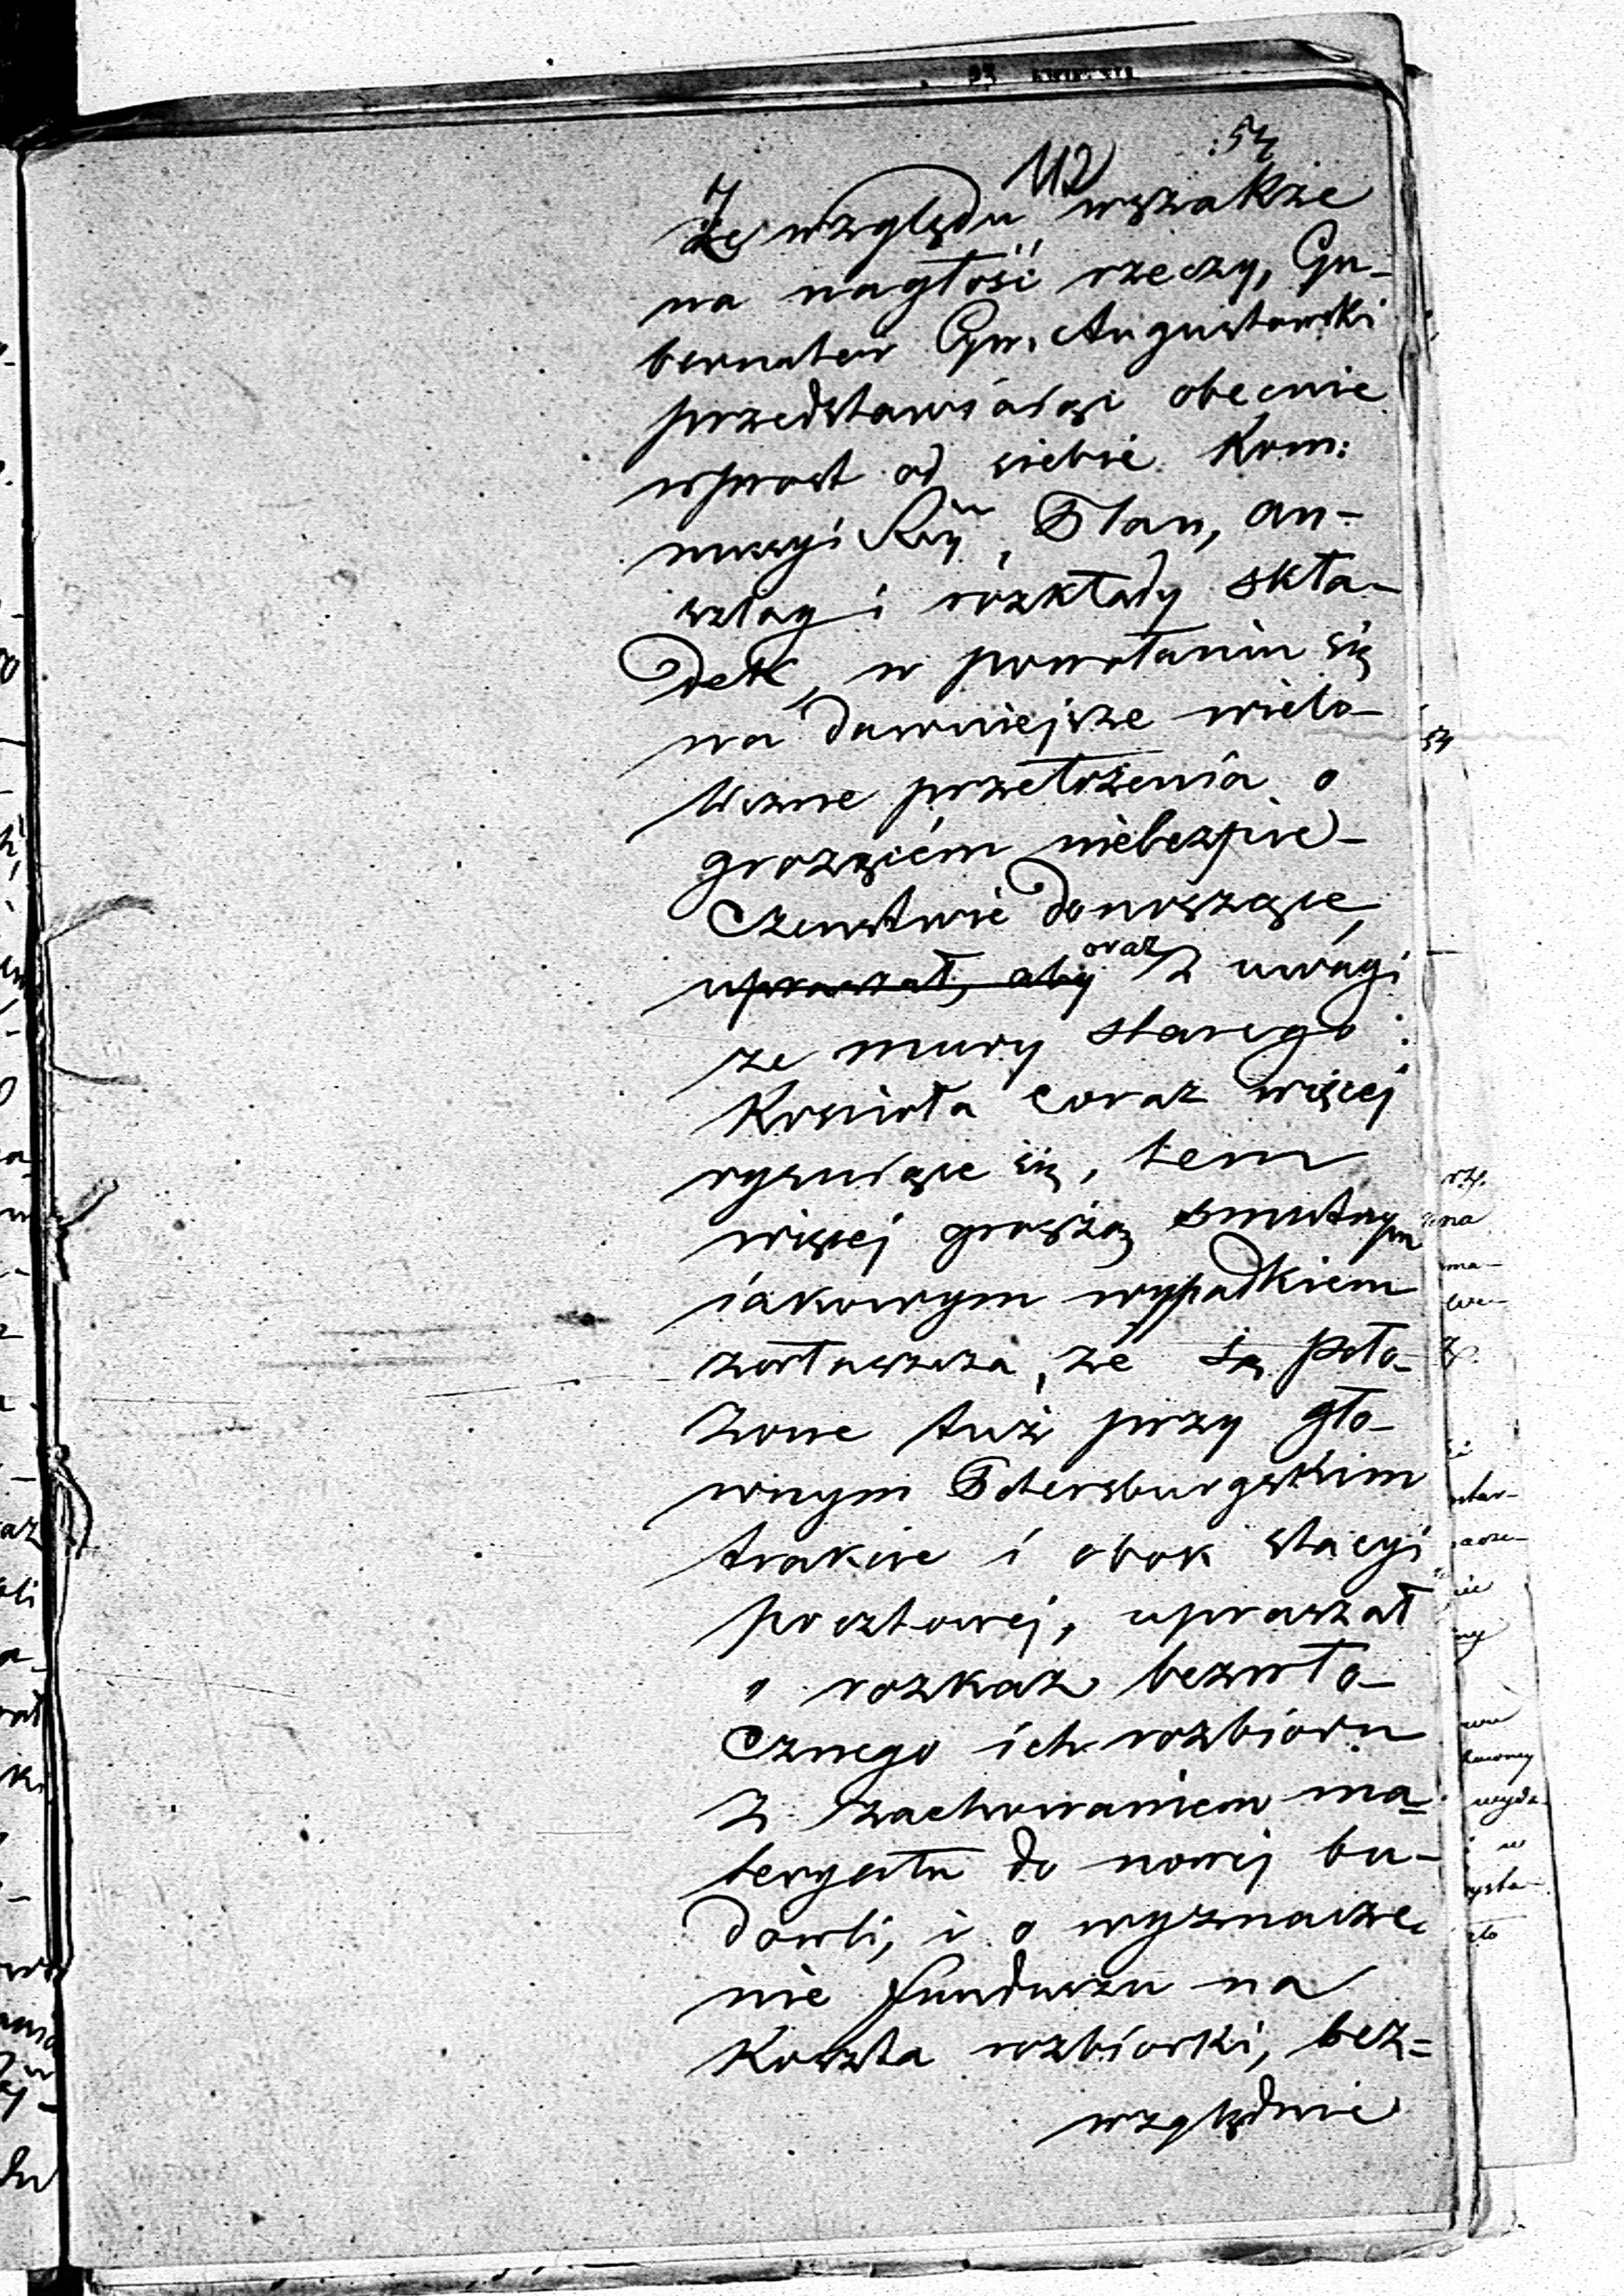 54
112
Ze względu wszakże
na nagłość rzeczy, Gu-
bernator Gu. Augustowski
przedstawiaiąc obecnie
wprost od siebie Kom:
missyi Rząw, Plan, an-
szlag i rozkłady skła-
dek, w powołaniu się
na dawniejsze wielo-
liczne przełożenia o
grożącém niebezpie-
czeństwie donoszące,
upraszał, aby oraz z uwagi
że mury starego
Kościoła coraz więcej
rysuiące się, tem
więcej grożą smutnym
iakowym wypadkiem
zwłaszcza, że są poło-
żone tuż przy głó-
wnym Petersburgskim
trakcie i obok stacyi
pocztowej, upraszał
o rozkaz bezwło-
cznego ich rozbioru
z zachowaniem ma-
teryału do nowej bu-
dowli, i o wyznacze-
nie funduszu na
Koszta rozbiorki, bez=
względnie